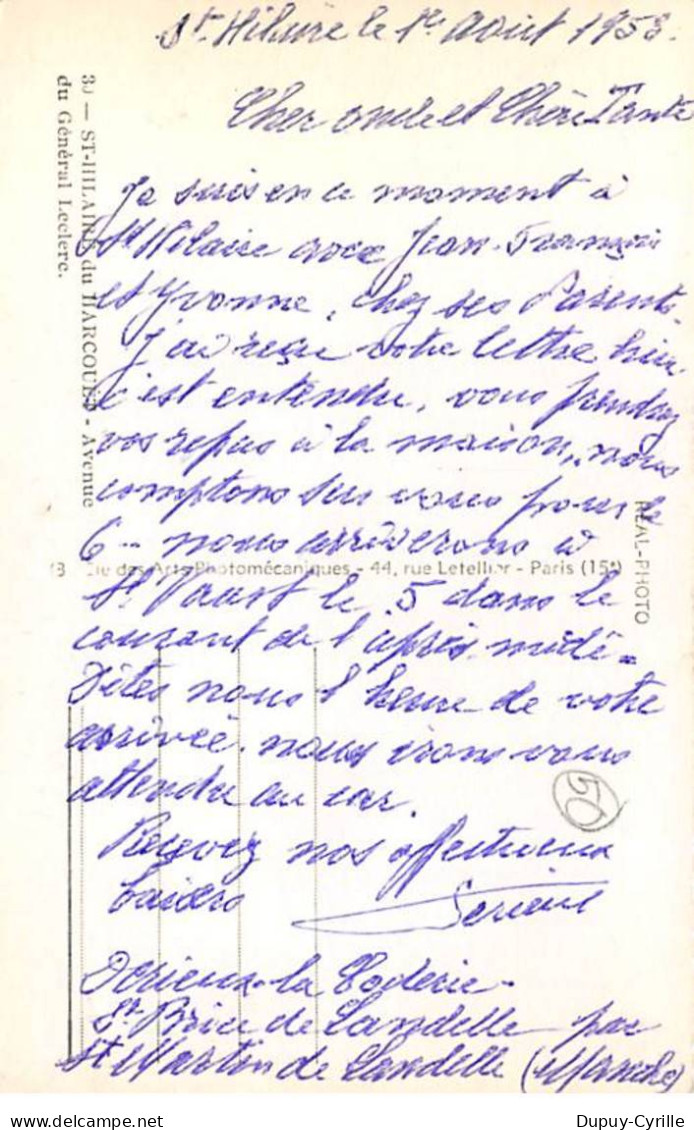 St Hilaire le 1er Août 1953.
Cher oncle et Chère Tante
Je suis en ce moment à
St Hilaire avec Jean-François
et Yvonne, chez ses Parents.
J'ai reçu votre lettre hier
c'est entendu, vous prendrez
vos repas à la maison, nous
comptons sur vous pour le
6 - nous arriverons à
St le 5 dans le
courant de l'après-midi -
Dites nous l'heure de votre
arrivée. nous irons vous
attendre au car.
Recevez nos affectueux
baisers
Derieux la
St Brice de Landelle par
St Martin de Landelle (Manche)
30 — ST-HILAIRE du HARCOUET - Avenue
du Général Leclerc.
Cie des Arts Photomécaniques - 44, rue Letellier - Paris (15e)
REAL-PHOTO
50
Dupuy-Cyrille